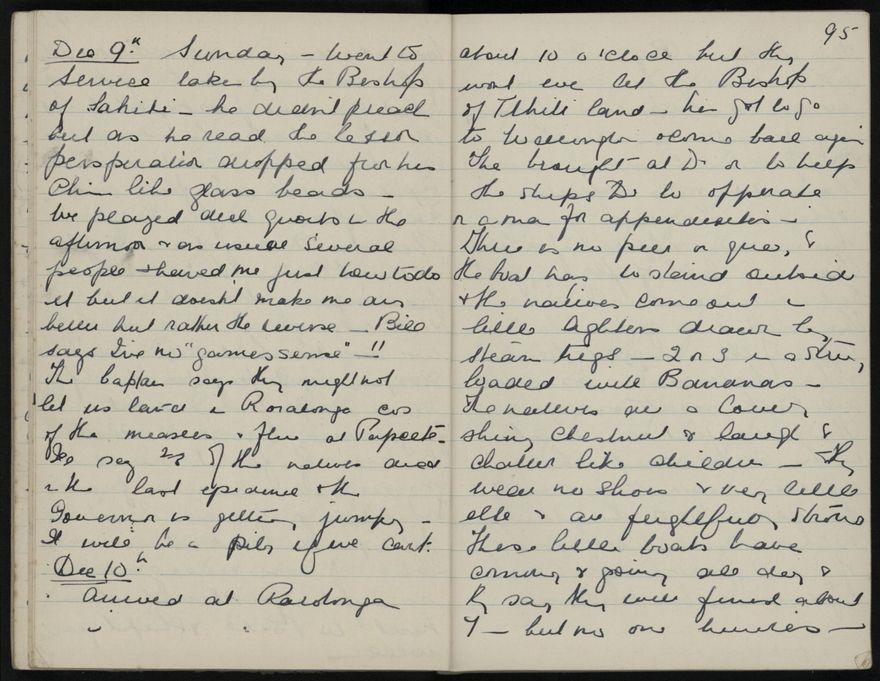 Dec 9th Sunday - Went to
Service taken by the Bishop
of Tahiti - he didn't preach
but as he read the lesson
persperation dropped from his
Chin like glass beads -
We played deck quoits in the
afternoon & as usual several
people shewed me just how to do
it but it doesn't make me any
better but rather the reverse - Bill
says I've no "games sense" - !!
The Captain says they might not
let us land in Raratonga cos
of the measles & flu at Papeete -
He say 2/3 of the natives died
in the last epidemic & the
Governor is getting jumpy -
It will be a pity if we cant.
Dec 10th
Arrived at Rarotonga
95
about 10 o'clock but they
wont even let the Bishop
of Tahiti land - he's got to go
to Wellington & come back again
The brought at Dr on to help
the ships Dr to opperate
on a man for appendesitis -
There is no peer or quay, &
the boat has to stand outside
& the natives come out in
little lighters drawn by
steam tugs - 2 or 3 in a string,
loaded with Bananas -
The natives are a lovely
shiny chestnut & laugh &
chatter like children - They
wear no shoes & very little
else & are frightfully strong
These little boats have
coming & going all day &
they say they will finish about
7 - but no one hurries -